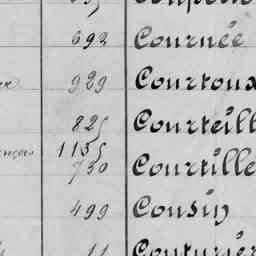 692 Cournée
929 Courtoux
825 Courteill
1135
730 Courtille
499 Cousin
11 Couturier